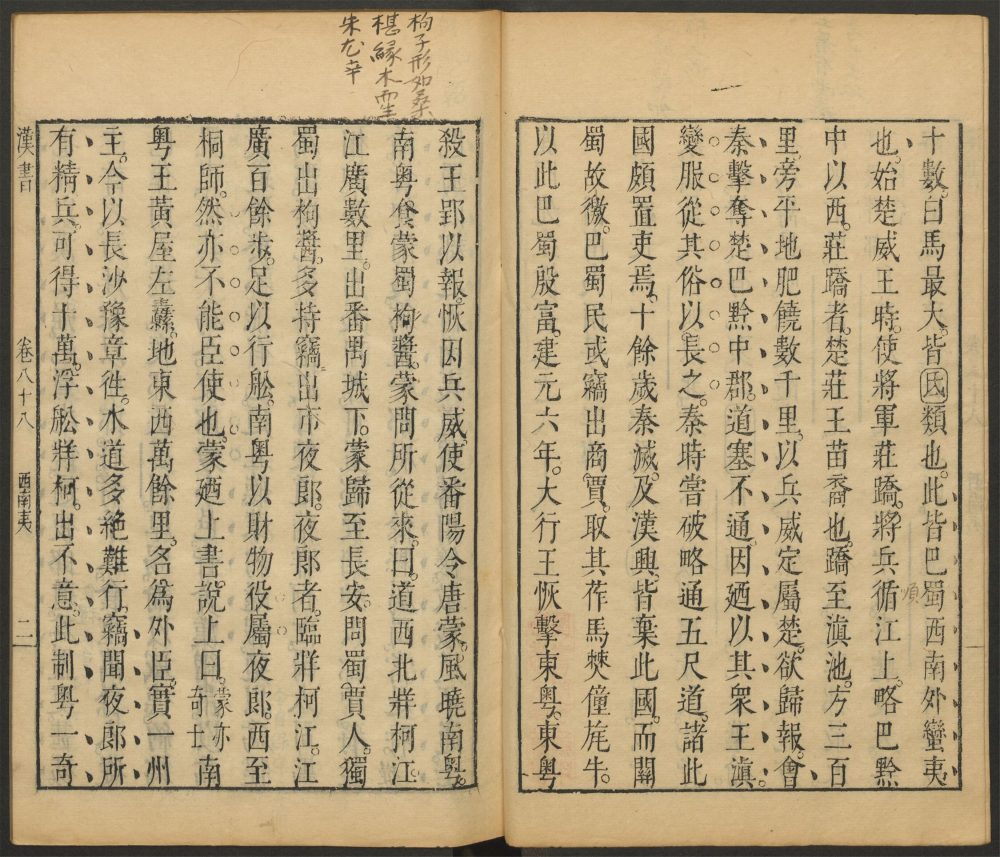 十數白馬最大皆氐類也此皆巴蜀西南外蠻夷
也始楚威王時使將軍莊蹻將兵循江上略巴黔
中以西莊蹻者楚莊王苗裔也蹻至滇池方三百
里旁平地肥饒數千里以兵威定屬楚欲歸報會
秦擊奪楚巴黔中郡道塞不通因廼以其衆王滇
變服從其俗以長之秦時嘗破略通五尺道諸此
國頗置吏焉十餘歲秦滅及漢興皆棄此國而關
蜀故徼巴蜀民或竊出商賈取其莋馬僰僮旄牛
以此巴蜀殷富建元六年大行王恢擊東粤東粤
順
殺王郢以報恢因兵威使番陽令唐蒙風曉南粤
南粤食蒙蜀枸醬蒙問所從來曰道西北牂柯江
江廣數里出番禺城下蒙歸至長安問蜀賈人獨
蜀出枸醬多持竊出市夜郎夜郎者臨牂柯江江
廣百餘步足以行船南粤以財物役屬夜郎西至
桐師然亦不能臣使也蒙廼上書說上曰蒙亦奇士南
粤王黃屋左纛地東西萬餘里名爲外臣實一州
主今以長沙豫章徃水道多絶難行竊聞夜郎所
有精兵可得十萬浮船牂柯出不意此制粤一奇
漢書 卷八十八 西南夷 二
枸子形如桑
椹緣木而生
味尤辛